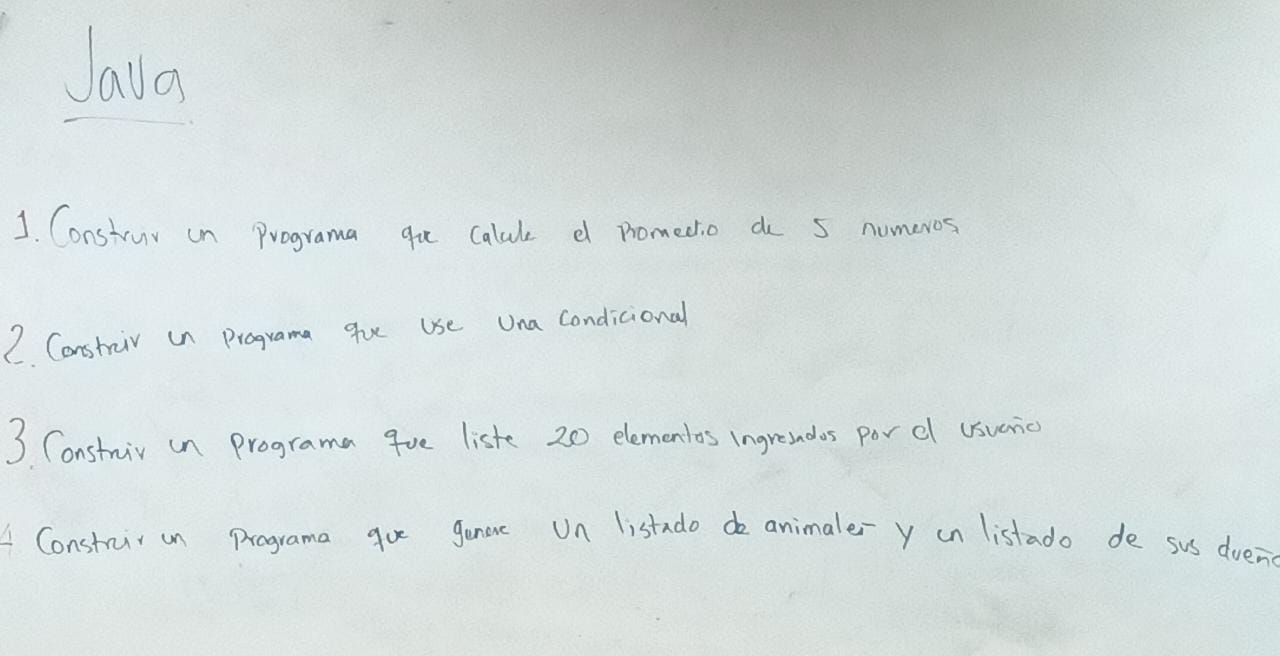 Java
1. Construir un programa que calcule el promedio de 5 numeros
2. Construir un programa que use una condicional
3. Construir un programa que liste 20 elementos ingresados por el usuario
4 Construir un programa que genere un listado de animales y un listado de sus dueño